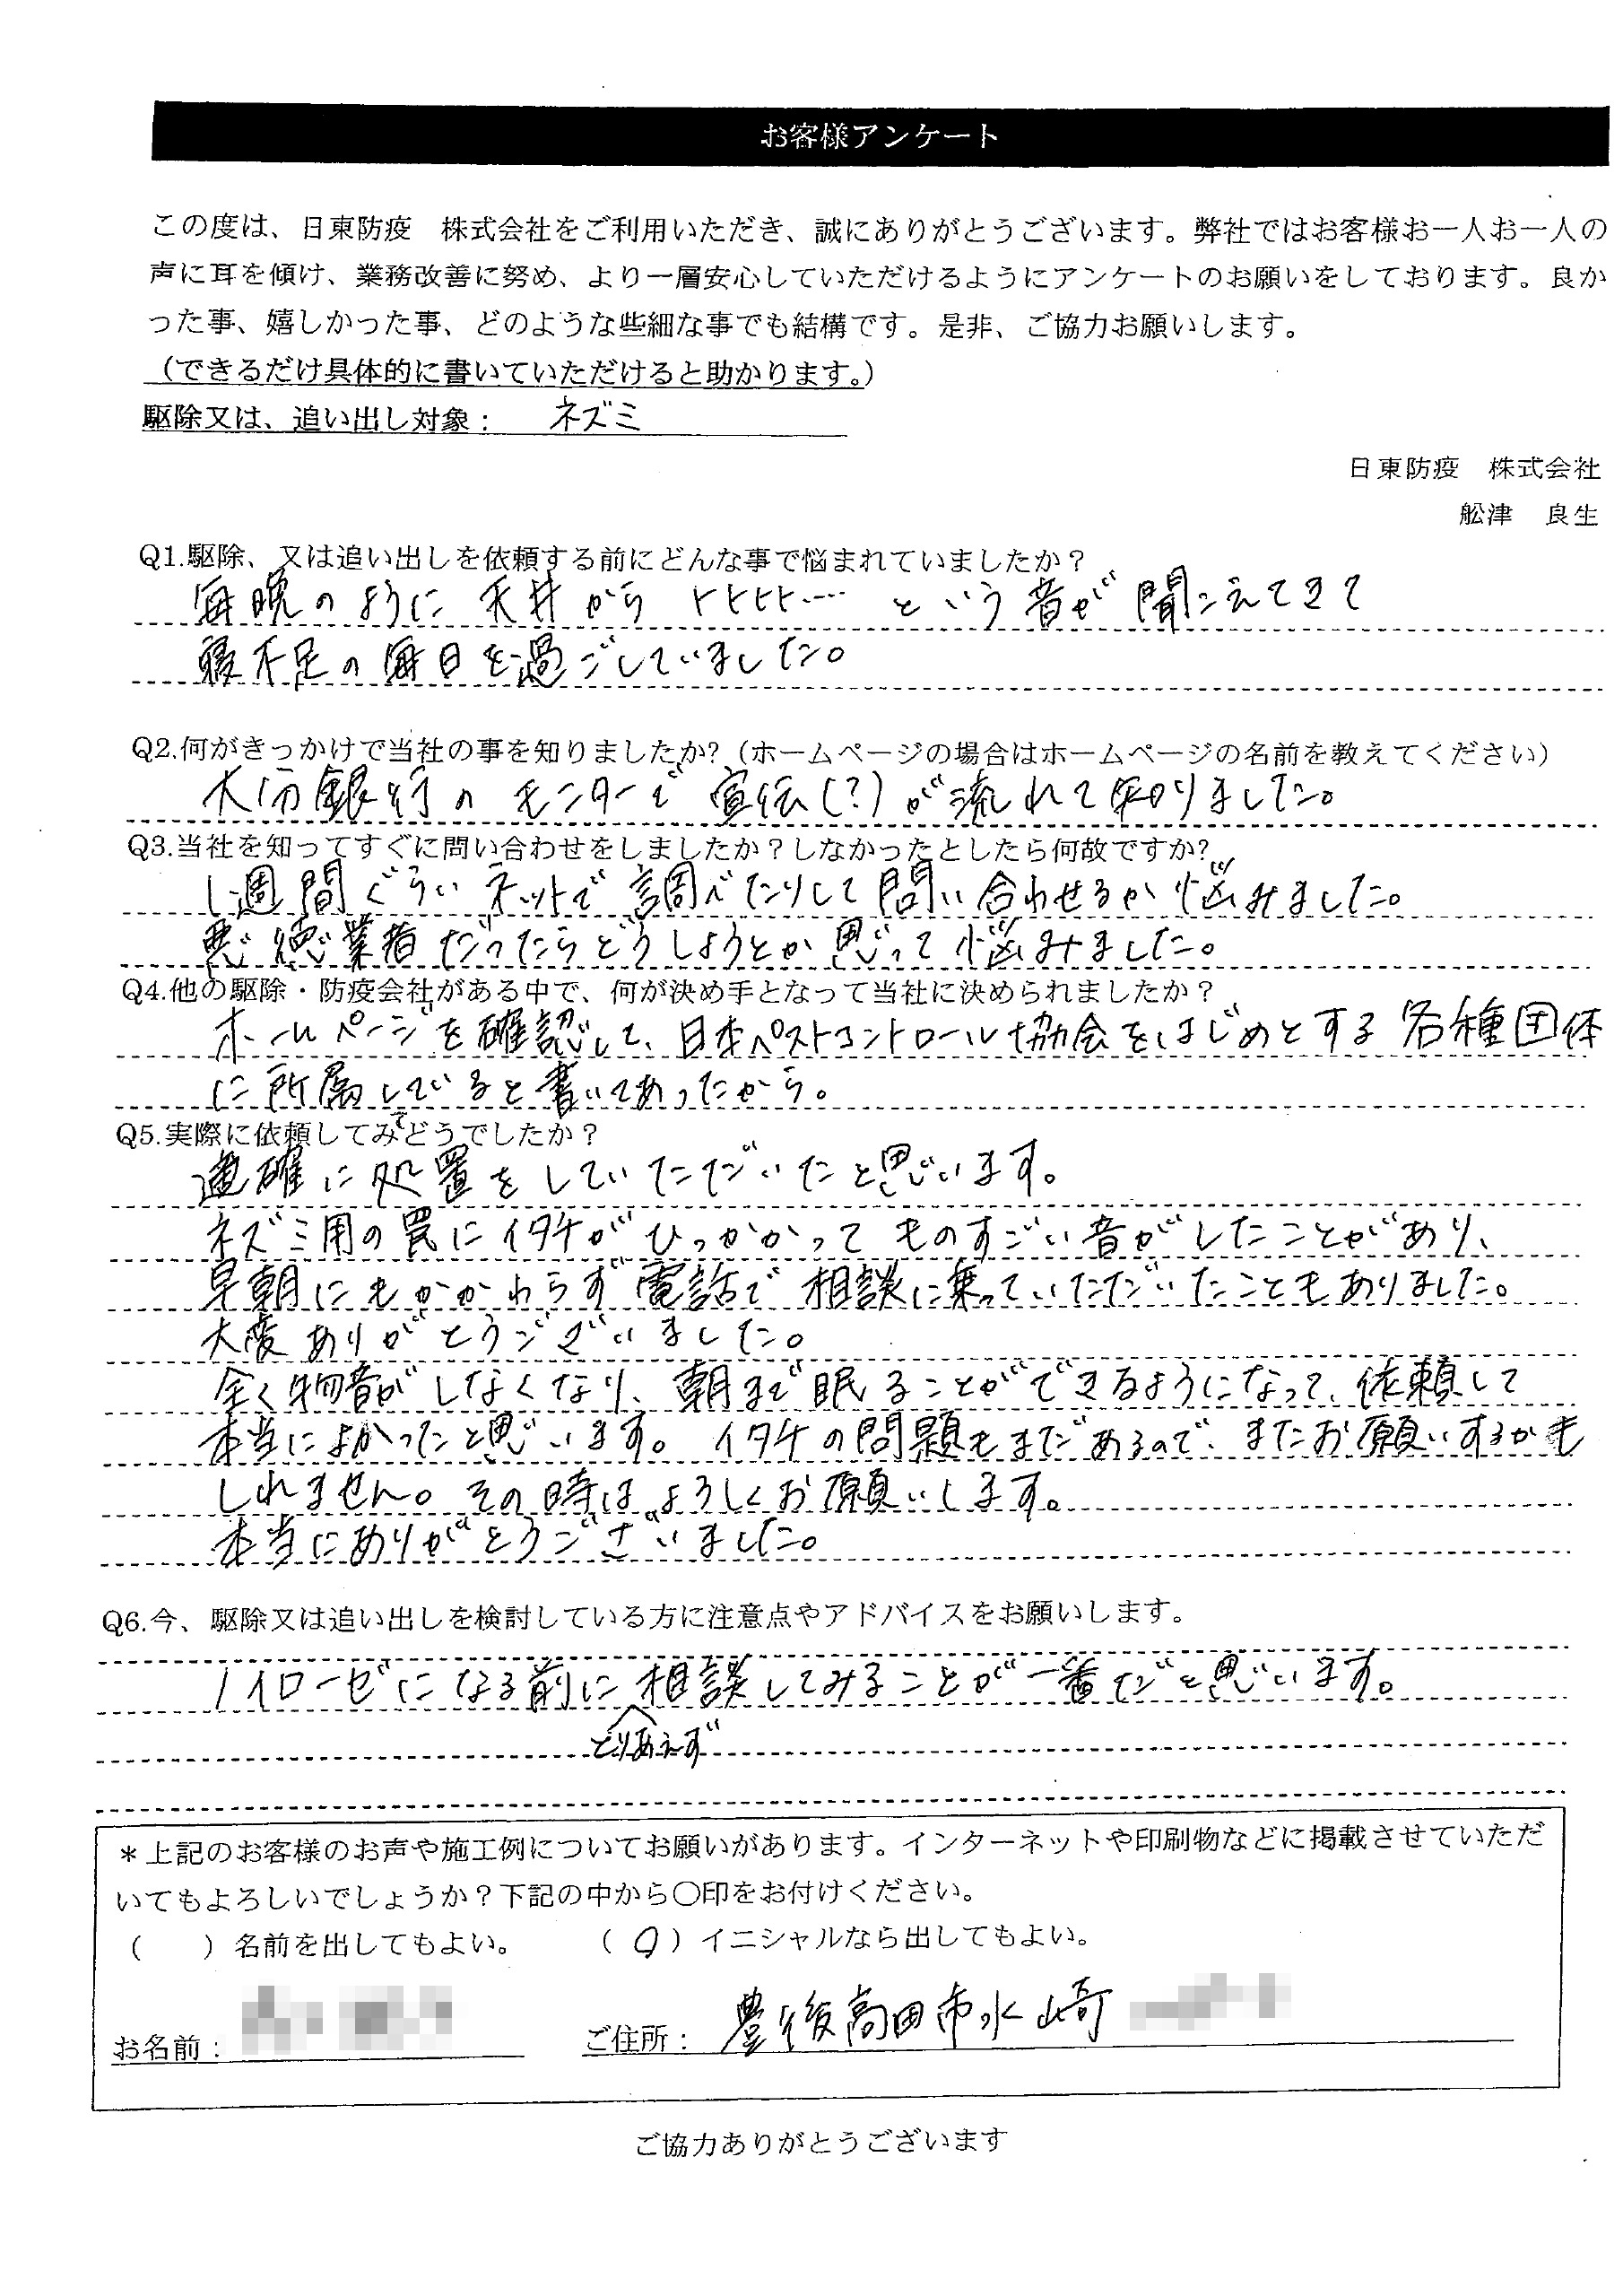 お客様アンケート
この度は、日東防疫　株式会社をご利用いただき、誠にありがとうございます。弊社ではお客様お一人お一人の
声に耳を傾け、業務改善に努め、より一層安心していただけるようにアンケートのお願いをしております。良か
った事、嬉しかった事、どのような些細な事でも結構です。是非、ご協力お願いします。
（できるだけ具体的に書いていただけると助かります。）
駆除又は、追い出し対象：　ネズミ
日東防疫　株式会社
舩津　良生
Q1.駆除、又は追い出しを依頼する前にどんな事で悩まれていましたか？
毎晩のように天井からトトトト…という音が聞こえてきて
寝不足の毎日を過ごしていました。
Q2.何がきっかけで当社の事を知りましたか?（ホームページの場合はホームページの名前を教えてください）
大分銀行のモニターで宣伝(？)が流れて知りました。
Q3.当社を知ってすぐに問い合わせをしましたか？しなかったとしたら何故ですか?
1週間ぐらいネットで調べたりして問い合わせるか悩みました。
悪徳業者だったらどうしようとか思って悩みました。
Q4.他の駆除・防疫会社がある中で、何が決め手となって当社に決められましたか？
ホームページを確認して、日本ペストコントロール協会をはじめとする各種団体
に所属していると書いてあったから。
Q5.実際に依頼してみてどうでしたか？
適確に処置をしていただいたと思います。
ネズミ用の罠にイタチがひっかかってものすごい音がしたことがあり、
早朝にもかかわらず電話で相談に乗っていただいたこともありました。
大変ありがとうございました。
全く物音がしなくなり、朝まで眠ることができるようになって、依頼して
本当によかったと思います。イタチの問題もまだあるので、またお願いするかも
しれません。その時はよろしくお願いします。
本当にありがとうございました。
Q6.今、駆除又は追い出しを検討している方に注意点やアドバイスをお願いします。
ノイローゼになる前に相談してみることが一番だと思います。
とりあえず
＊上記のお客様のお声や施工例についてお願いがあります。インターネットや印刷物などに掲載させていただ
いてもよろしいでしょうか？下記の中から〇印をお付けください。
（　　）名前を出してもよい。　　（〇）イニシャルなら出してもよい。
お名前：　ご住所：　豊後高田市水崎
ご協力ありがとうございます